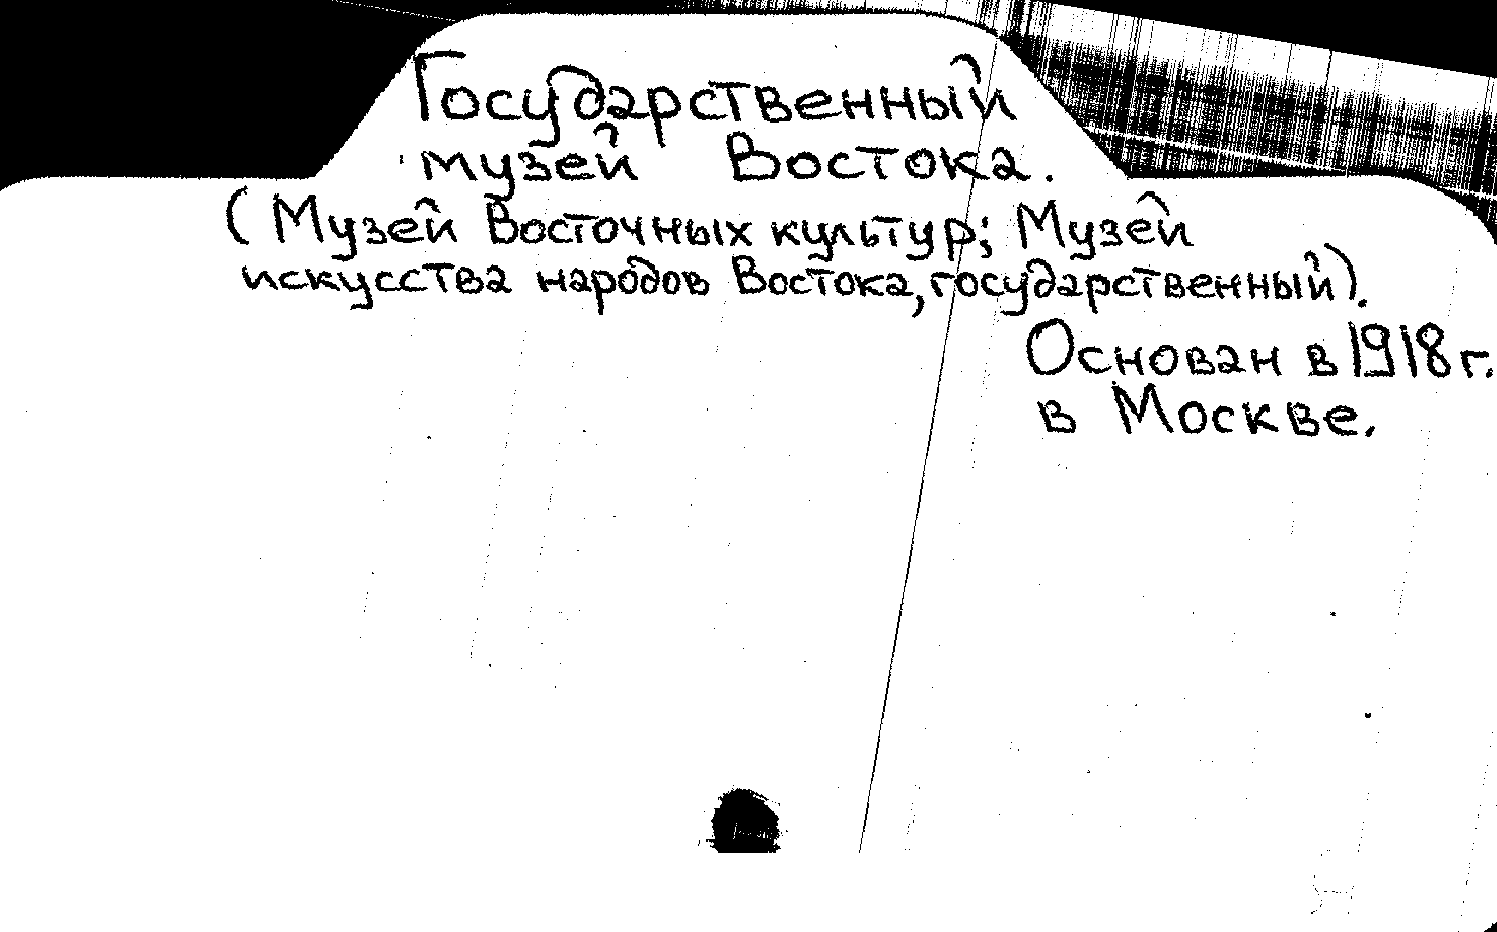 Государственный
музей Востока.
(Музей Восточных культур; Музей
искусства народов Востока, государственный).
Основан в 1918 г.
в Москве.